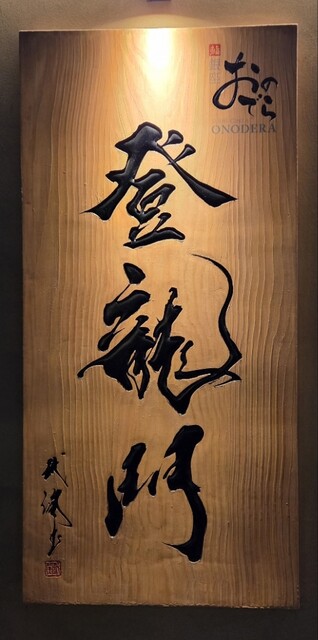 おのでら
ONODERA
登龍門